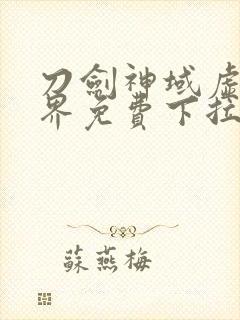 刀劍神域虛
界免費下拉
蘇燕梅